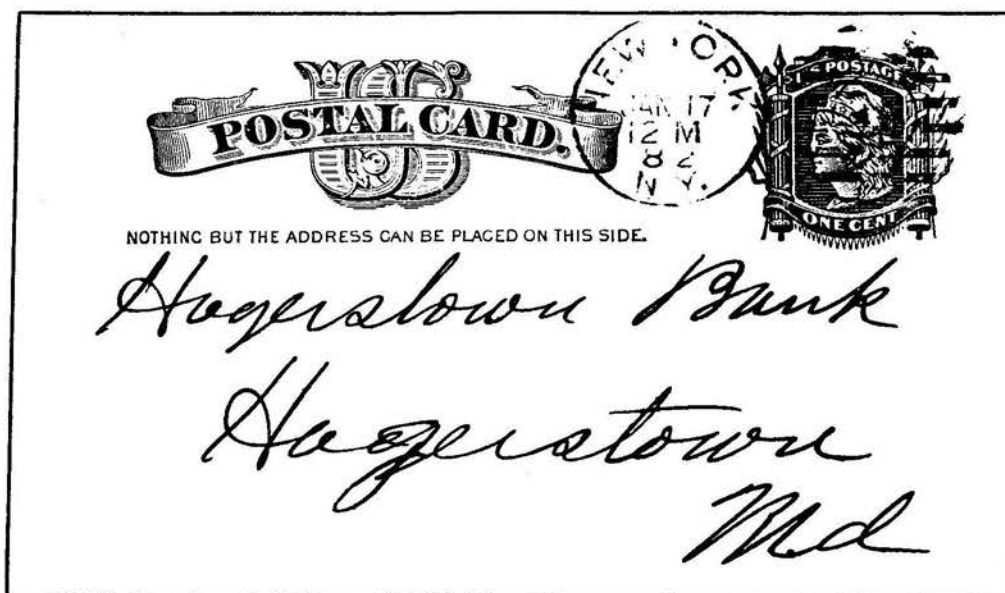 US
POSTAL CARD.
NEW YORK
JAN 17
12 M
82
N.Y.
POSTAGE
ONE CENT
NOTHING BUT THE ADDRESS CAN BE PLACED ON THIS SIDE.
Hagerstown Bank
Hagerstown
Md